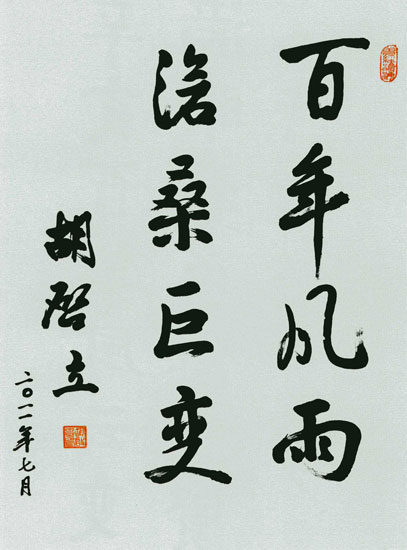 百年风雨
滄桑巨变
胡启立
二〇一一年七月